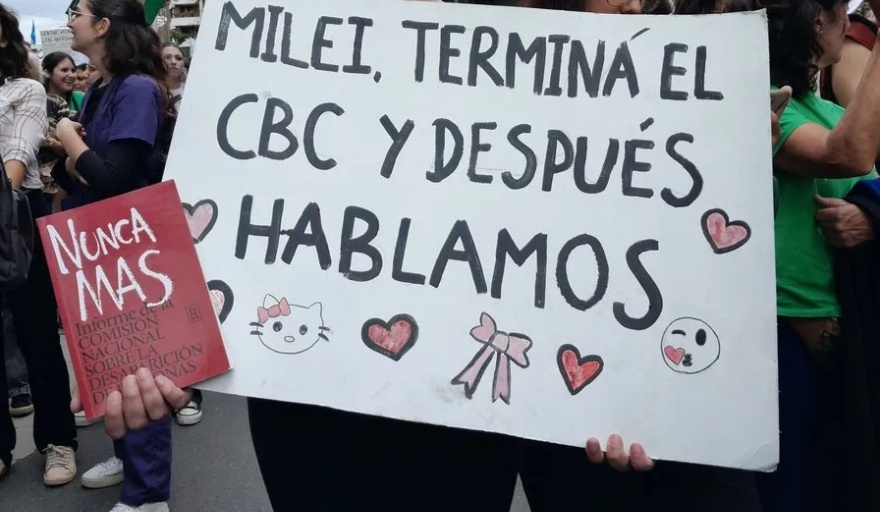 MILEI, TERMINÁ EL
CBC Y DESPUÉS
HABLAMOS
NUNCA
MAS
Informe de la
COMISIÓN
NACIONAL
SOBRE LA
DESAPARICIÓN
DE PERSONAS